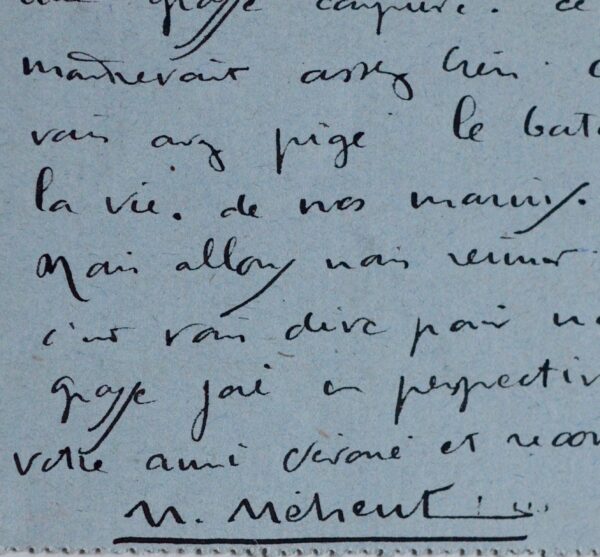 grosse
assez bien.
vous avez pigé le bate
la vie. de nos marins.
Mais allons nous réunir
c'est vous dire pour n
grosse joie en perspectiv
votre ami dévoué et recon
M. Méheut